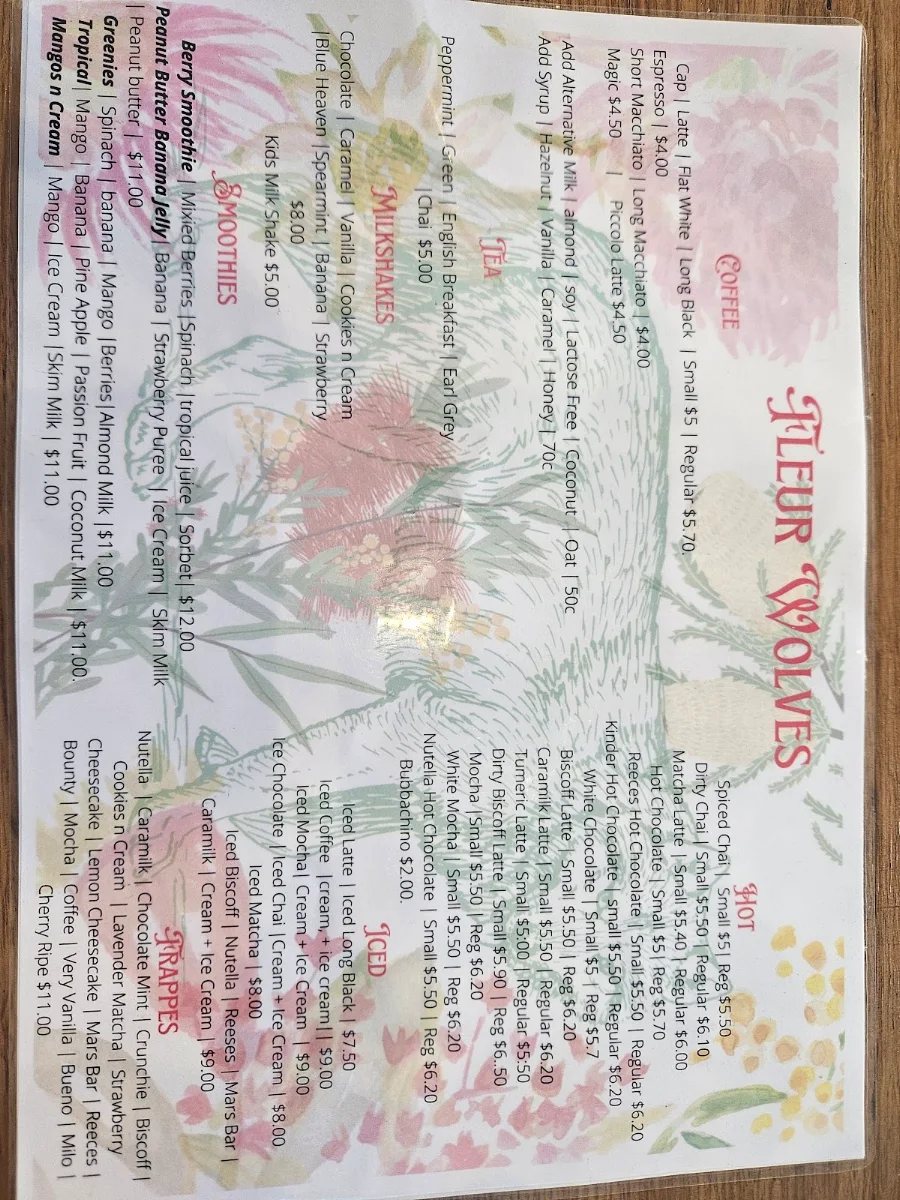 FLEUR WOLVES
COFFEE
Cap | Latte | Flat White | Long Black | Small $5 | Regular $5.70.
Espresso | $4.00
Short Macchiato | Long Macchiato | $4.00
Magic $4.50 | Piccolo Latte $4.50
Add Alternative Milk | almond | soy | Lactose Free | Coconut | Oat | 50c
Add Syrup | Hazelnut | Vanilla | Caramel | Honey | 70c
TEA
Peppermint | Green | English Breakfast | Earl Grey
| Chai $5.00
MILKSHAKES
Chocolate | Caramel | Vanilla | Cookies n Cream
| Blue Heaven | Spearmint | Banana | Strawberry
$8.00
Kids Milk Shake $5.00
SMOOTHIES
Berry Smoothie | Mixied Berries | Spinach | tropical juice | Sorbet | $12.00
Peanut Butter Banana Jelly | Banana | Strawberry Puree | Ice Cream | Skim Milk
| Peanut butter | $11.00
Greenies | Spinach | banana | Mango | Berries | Almond Milk | $11.00
Tropical | Mango | Banana | Pine Apple | Passion Fruit | Coconut Milk | $11.00.
Mangos n Cream | Mango | Ice Cream | Skim Milk | $11.00
HOT
Spiced Chai | Small $5 | Reg $5.50
Dirty Chai | Small $5.50 | Regular $6.10
Matcha Latte | Small $5.40 | Regular $6.00
Hot Chocolate | Small $5 | Reg $5.70
Reeces Hot Chocolate | Small $5.50 | Regular $6.20
Kinder Hot Chocolate | small $5.50 | Regular $6.20
White Chocolate | Small $5 | Reg $5.7
Biscoff Latte | Small $5.50 | Reg $6.20
Caramilk Latte | Small $5.50 | Regular $6.20
Tumeric Latte | Small $5:00 | Regular $5:50
Dirty Biscoff Latte | Small $5.90 | Reg $6.50
Mocha | Small $5.50 | Reg $6.20
White Mocha | Small $5.50 | Reg $6.20
Nutella Hot Chocolate | Small $5.50 | Reg $6.20
Bubbachino $2.00.
ICED
Iced Latte | Iced Long Black | $7.50
Iced Coffee | cream + ice cream | | $9.00
Iced Mocha | Cream + Ice Cream | $9.00
Ice Chocolate | Iced Chai | Cream + Ice Cream | $8.00
Iced Matcha | $8.00
Iced Biscoff | Nutella | Reeses | Mars Bar |
Caramilk | Cream + Ice Cream | $9.00
FRAPPES
Nutella | Caramilk | Chocolate Mint | Crunchie | Biscoff |
Cookies n Cream | Lavender Matcha | Strawberry
Cheesecake | Lemon Cheesecake | Mars Bar | Reeces |
Bounty | Mocha | Coffee | Very Vanilla | Bueno | Milo |
Cherry Ripe $11.00